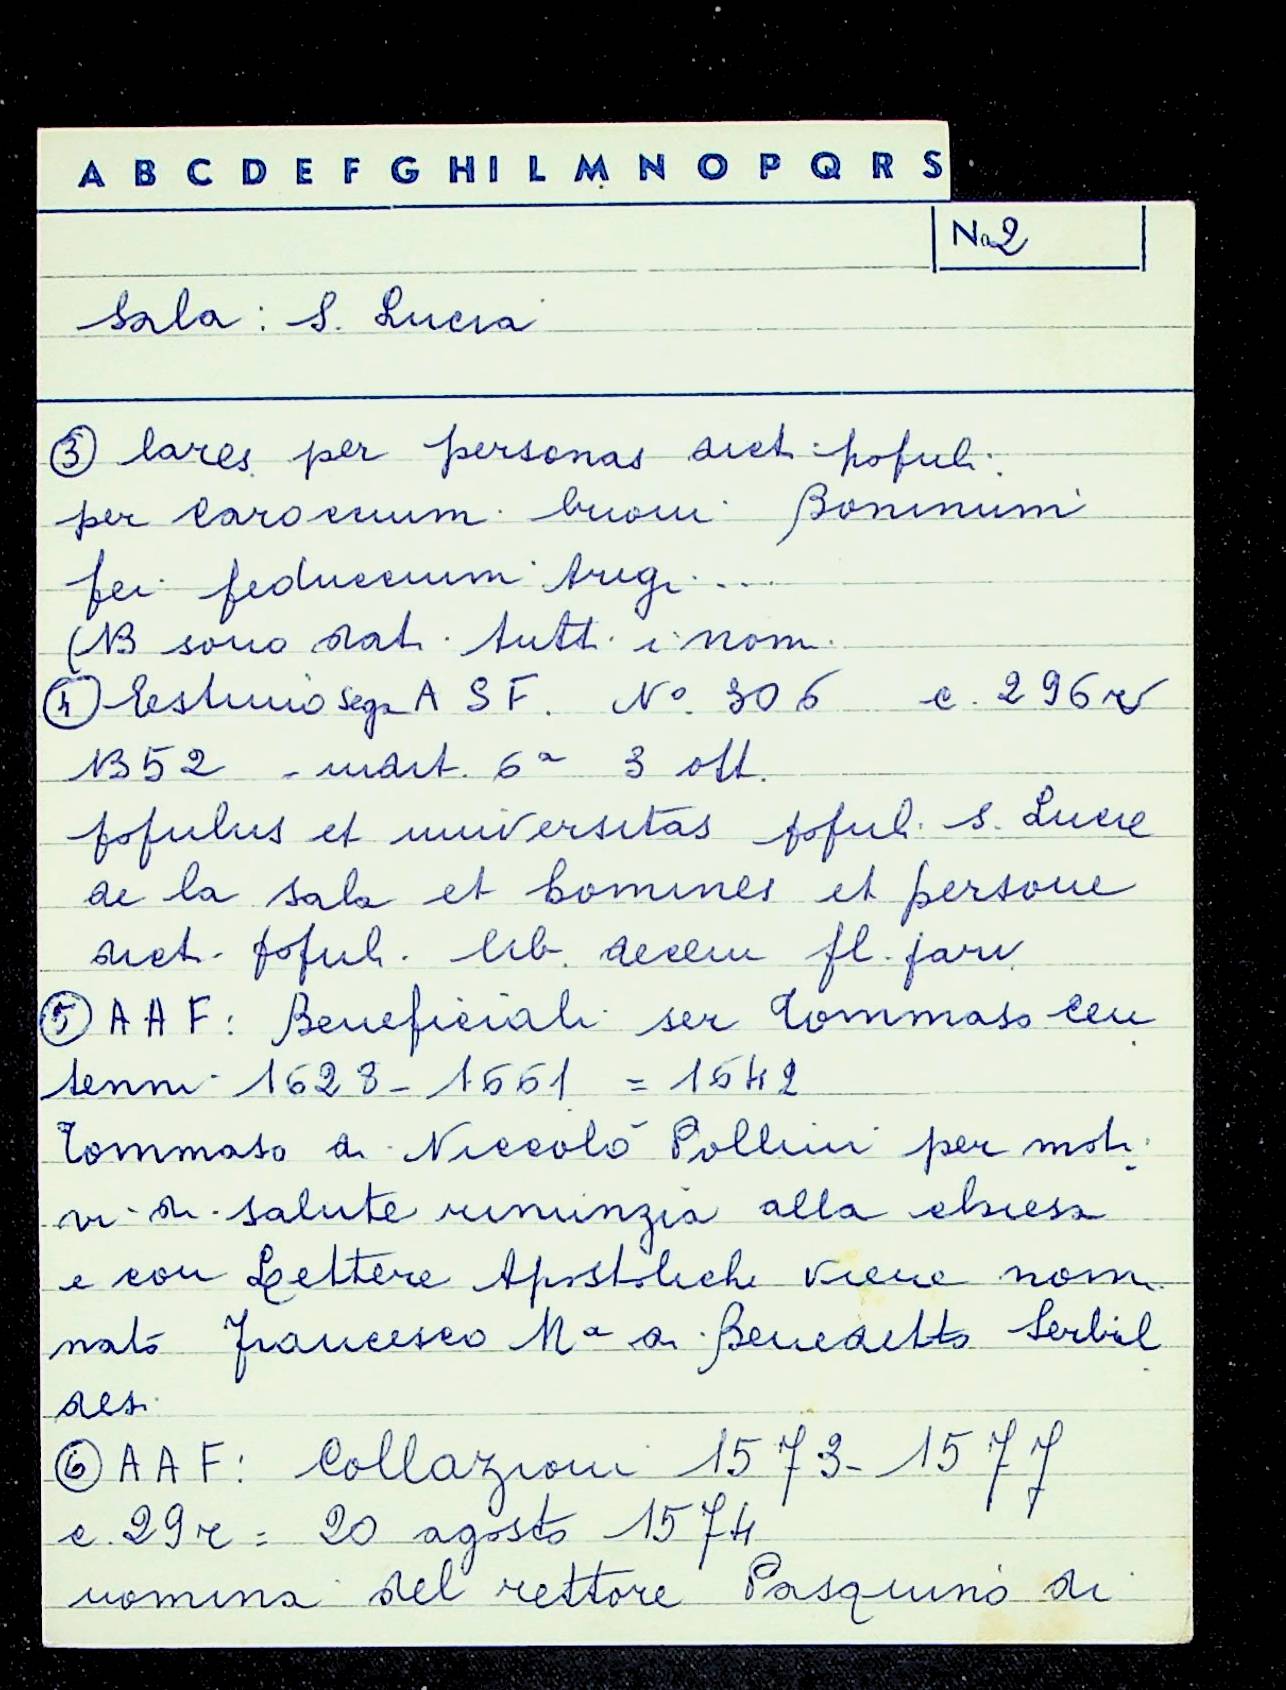 A B C D E F G H I L M N O P Q R S
No 2
Sala: S. Lucia
③ lares per personas dicti populi:
per Caroccium buoni Boninum
fei feduccium Arrigi ...
(NB sono dati tutti i nomi
④ Estimo Segr A S F. N°. 306 c. 296 v
1352 - indict. 6a 3 ott.
populus et universitas populi S. Lucie
de la sala et homines et persone
dicti populi lib. decem fl. parv.
⑤ A A F: Beneficiali ser Tommaso Cen
tenni 1628 - 1661 = 1642
Tommaso di Niccolò Pollini per moti
vi di salute rinunzia alla chiesa
e con Lettere Apostoliche viene nomi
nato Francesco Ma di Benedetto Serbal
desi
⑥ A A F: Collazioni 1573 - 1577
c. 29 r = 20 agosto 1574
nomina del rettore Pasquino di